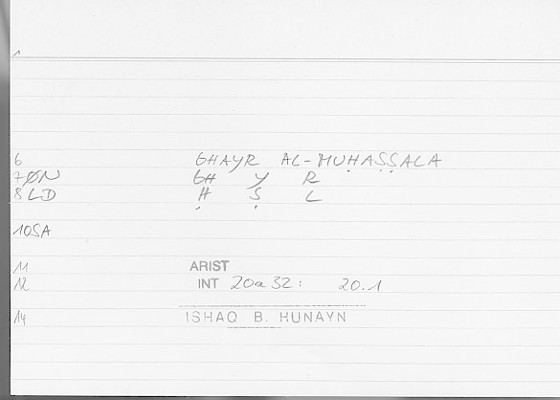 1
6 GHAYR AL-MUḤAṢṢALA
7 ØN GH Y R
8 LD Ḥ Ṣ L
10 SA
11 ARIST
12 INT 20a32: 20.1
14 ISHAQ B. HUNAYN